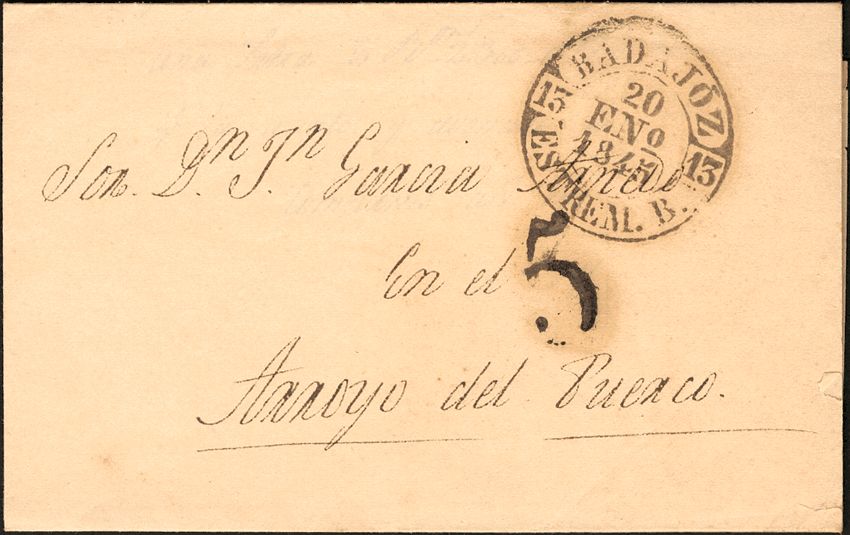 BADAJÓZ
13 13
20
ENº
1845
ESTREM. B.
Sor. Dn. Jn. Garcia
5
En el
Arroyo del Puerco.